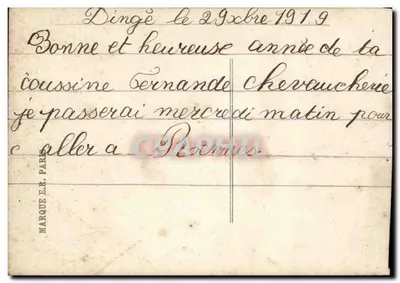 Dingé le 29xbre 1919
Bonne et heureuse année de ta
coussine Fernande Chevaucherie
je passerai mercredi matin pour
aller a Rennes
MARQUE E.R. PARIS